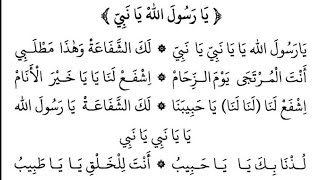 ﴿ يَا رَسُولَ اللهْ يَا نَبِيْ ﴾
يَارَسُولَ الله يَا يَا نَبِيْ يَا نَبِيْ * لَكَ الشَّفَاعَةْ وَهٰذَا مَطْلَبِيْ
أَنْتَ الْمُرْتَجَى يَوْمَ الزِّحَامْ * اِشْفَعْ لَنَا يَا يَا خَيْرَ الْأَنَامْ
اِشْفَعْ لَنَا (لَنَا لَنَا) يَا حَبِيْبَنَا * لَكَ الشَّفَاعَةْ يَا رَسُولَ الله
يَا يَا نَبِي يَا نَبِي
لُذْنَا بِكَ يَا يَا حَبِيبْ * أَنْتَ لِلْخَلْقِ يَا يَا طَبِيبْ